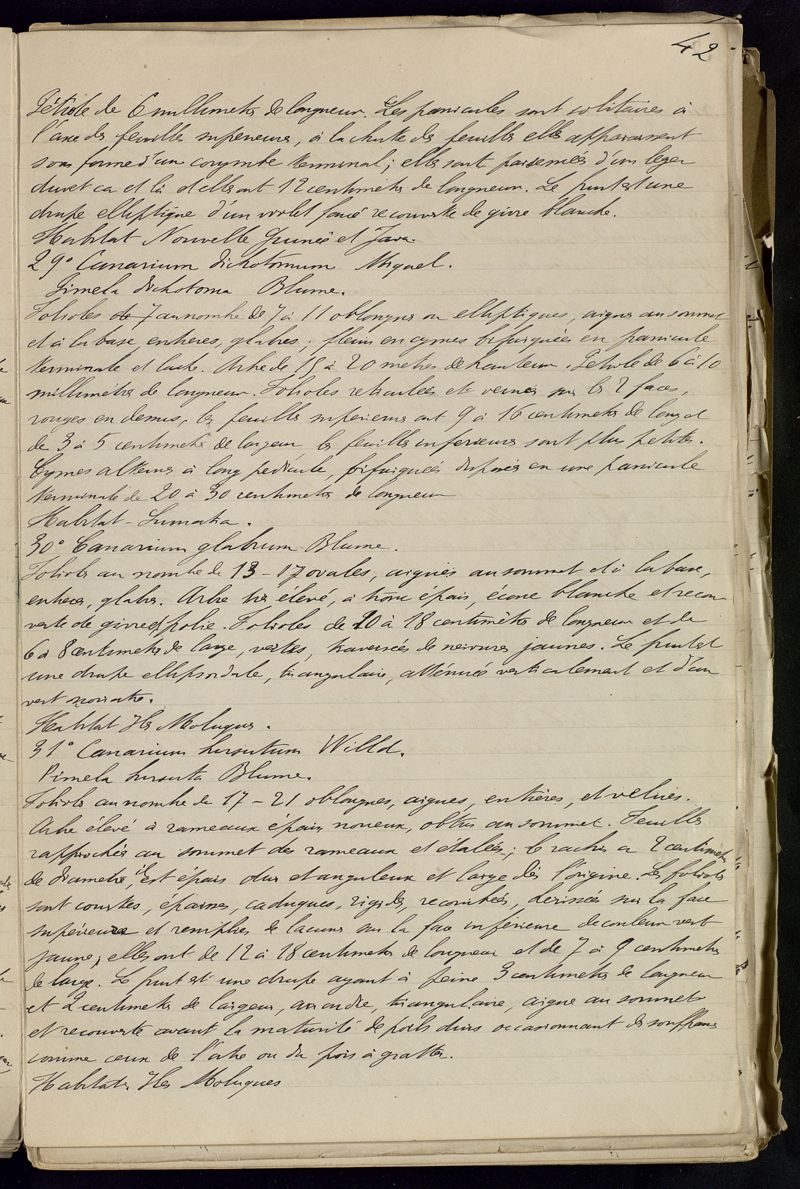 42
Pétiole de 6 millimetres de longueur. Les panicules sont solitaires à
l'axe des feuilles superieures, à la chute des feuilles elles apparaissent
sous forme d'un corymbe terminal; elles sont parsemées d'un leger
duvet ca et là et elles ont 12 centimetres de longueur. Le fruit est une
drupe elliptique d'un violet foncé recouverte de givre blanche.
Habitat Nouvelle Guinée et Java.
29° Canarium dichotomum Miquel.
Pimela dichotoma Blume.
Folioles de 7 au nombre de 7 à 11 oblongues ou elliptiques, aigues au sommet
et à la base entières, glabres; fleurs en cymes bifurquées en panicule
terminale et lache. Arbre de 15 à 20 metres de hauteur. Petiole de 6 à 10
millimètres de longueur. Folioles reticulées et veinées sur les 2 faces,
rouges en dessus, les feuilles superieures ont 9 à 16 centimetres de long et
de 3 à 5 centimetres de largeur les feuilles inferieures sont plus petites.
Cymes alternes à long pedicule, bifurquées disposées en une panicule
terminale de 20 à 30 centimetres de longueur
Habitat - Sumatra.
30° Canarium glabrum Blume.
Folioles au nombre de 13 - 17 ovales, aigües au sommet et à la base,
entieres, glabres. Arbre très élevé, à tronc épais, écorce blanche et recou
verte de givre, polie. Folioles de 10 à 18 centimètres de longueur et de
6 à 8 centimetres de large, vertes, traversées de nervures jaunes. Le fruit est
une drupe ellipsoidale, triangulaire, atténuée verticalement et d'un
vert noiratre.
Habitat Iles Moluques.
31° Canarium hirsutum Willd.
Pimela hirsuta Blume.
Folioles au nombre de 17 - 21 oblongues, aigues, entières, et velues.
Arbre élevé à rameaux épais noueux, obtus au sommet. Feuilles
rapprochées au sommet des rameaux et étalées; le rachis a 2 centimetres
de diametre, il est épais dur et anguleux et large dès l'origine. Les folioles
sont courtes, épaisses, caduques, rigides, recourbées, herissées sur la face
superieure et remplies de lacunes sur la face inférieure de couleur vert
jaune; elles ont de 12 à 18 centimetres de longueur et de 7 à 9 centimetres
de large. Le fruit est une drupe ayant à peine 3 centimetres de longueur
et 2 centimetres de largeur, arrondie, triangulaire, aigue au sommet
et recouverte avant la maturité de poils durs occasionnant des souffrances
comme ceux de l' ou du pois à gratter.
Habitat Iles Moluques